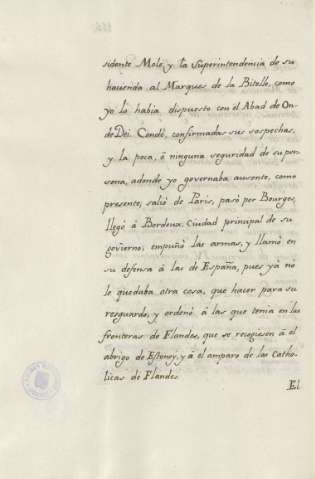 sidente Molè, y la Superintendencia de su
hacienda al Marques de la Bitelle, como
yo lo habia dispuesto con el Abad de On-
de Dei. Condè, confirmadas sus sospechas,
y la poca, ó ninguna seguridad de su per-
sona, adonde yo governaba ausente, como
presente, salió de Paris, pasó por Bourges,
llegó á Bordeux, Ciudad principal de su
govierno, empuñó las armas, y llamó en
su defensa á las de España, pues yá no
le quedaba otra cosa, que hacer para su
resguardo, y ordenó á las que tenia en las
fronteras de Flandes, que se recogiesen á el
abrigo de Estenoy, y á el amparo de las Catho-
licas de Flandes.
El